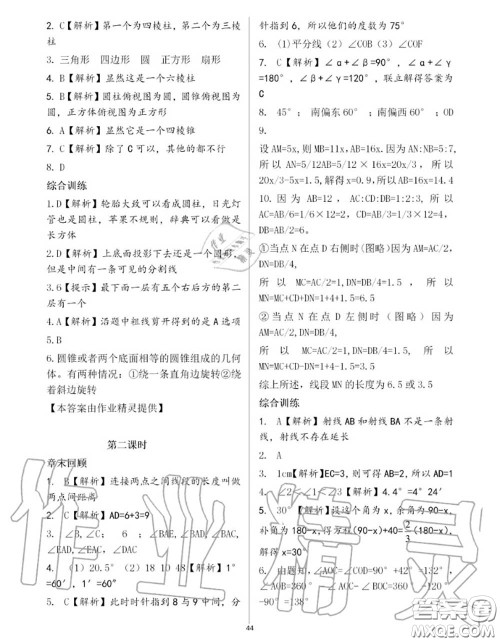 2. C【解析】第一个为四棱柱，其余为四棱
柱
3. 三角形　四边形　圆　正方形　扇形
4. B【解析】显然这是一个六棱柱
5. B【解析】圆柱俯视图为圆，圆锥俯视图为
圆，正方体俯视图为正方形
6. A【解析】显然它是一个四棱锥
7. C【解析】除了 C 可以，其他的都不行
8. D
综合训练
1.D【解析】轮胎大致可以看成圆柱，日光灯
管也是圆柱，苹果不规则，辞典可以看成是长
方体
2.D【解析】上底面投影下去还是一个圆形，
但是中间有一条可见的分割线
3.6【提示】最下面一层有五个右后方的第二
层有一个
4.A【解析】沿题中粗线剪开得到的是 A 选项
5. C
6.圆锥或者两个底面相等的圆锥组成的几何
体。有两种情况：①绕一条直角边旋转②绕
着斜边旋转
【本答案由作业精灵提供】
第二课时
章末回顾
1. B【解析】连接两点之间线段的长度叫做
两点间距离
2. C【解析】AD=6+3=9
3. ∠EAD, ∠EAC, ∠DAC
4. (1) 20.5° (2) 18 10 48【解析】1°
=60′，1′=60″
5. C【解析】此时时针指到 8 与 9 中间，分
针指到 6，所以他们的度数为 75°
6. (1)平分线 (2) ∠COB (3) ∠COF
7. C【解析】∠α+∠β=90°，∠α+∠γ
=180°，∠β+∠γ=120°，联立解得答案为
C
8. 45°；南偏东 60°；南偏西 60°；OD
9.
设 AM=5x,则 MB=11x, AB=16x.因为 AN:NB=5:7,
所以 AN=5/12AB=5/12×16x=20x/3，所以
20x/3-5x=1.5,解得 x=0.9,所以 AB=16x=14.4
10. 因为 AB=12, AC:CD:DB=1:2:3, 所以
AC=AB/6=1/6×12=2, CD=AB/3=12/3=4,
DB=AB/2=12/2=6.
①当点 N 在点 D 右侧时(图略)因为 AM=AC/2,
DN=DB/4,
所以 MC=AC/2=1,DN=DB/4=1.5，所以
MN=MC+CD+DN=1+4+1.5=6.5
②当点 N 在点 D 左侧时(图略)因为
AM=AC/2,DN=DB/4,
所以 MC=AC/2=1,DN=DB/4=1.5，所以
MN=MC+CD-DN=1+4-1.5=3.5
综上所述，线段 MN 的长度为 6.5 或 3.5
综合训练
1. A【解析】射线 AB 和射线 BA 不是一条射
线，射线不存在延长
2. A
3. 1cm【解析】EC=3,则可得 AB=2, 所以 AD=1
4. 4.4°=4°24′
5. 30°【解析】设这个角为 x,余角为 90-x,
补角为 180-x,得方程(90-x)+40=2/3(180-x),
解得 x=30°
44